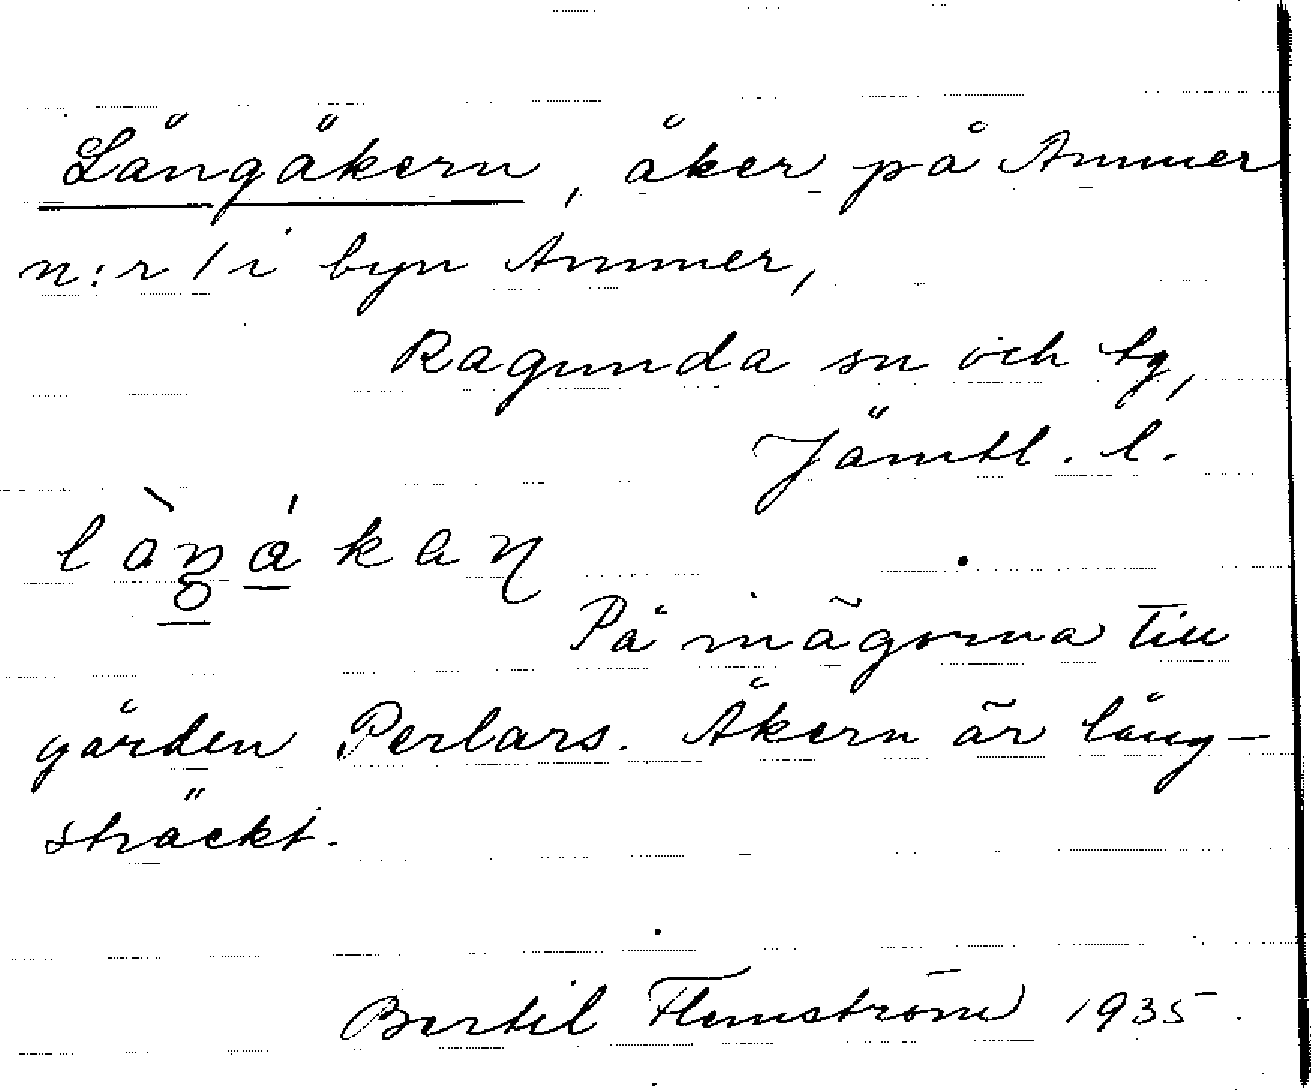 Långåkern, åker på Ammer
n:r 1 i byn Ammer,
Ragunda sn och tg,
Jämtl. l.
På ägorna till
gården Perlars. Åkern är lång-
sträckt.
Bertil Flemström 1935.